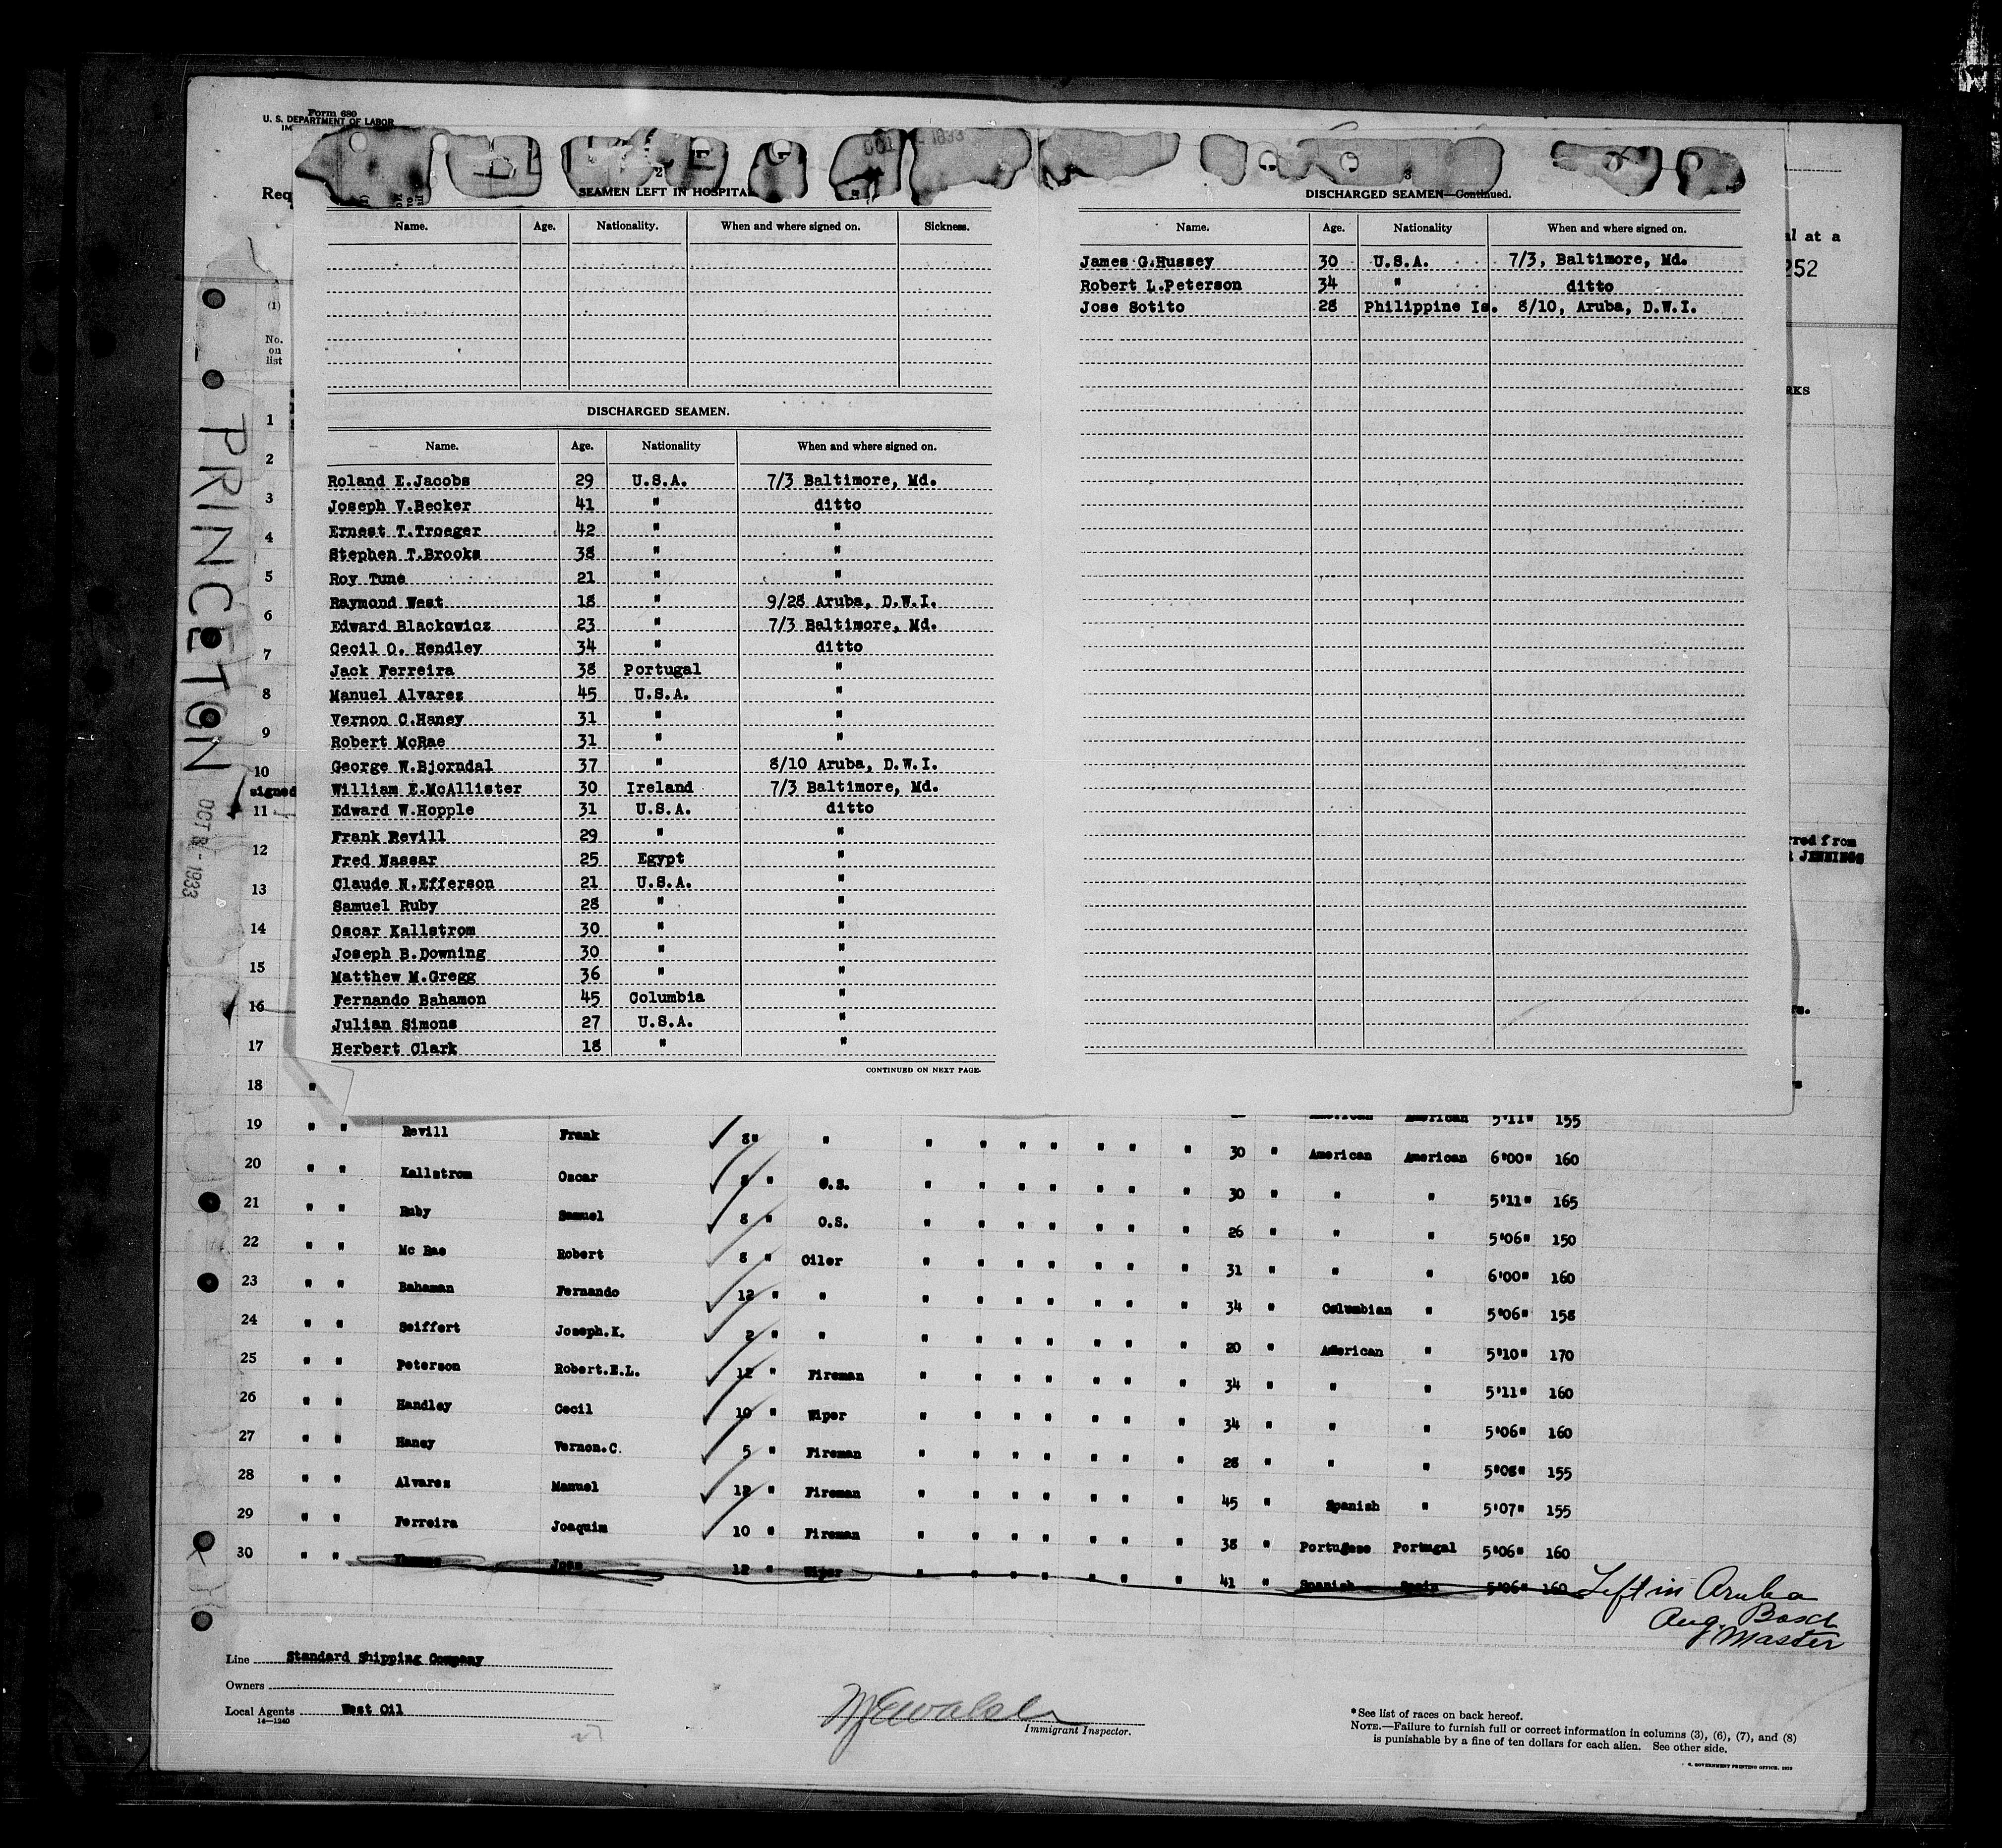 Form 680
U. S. DEPARTMENT OF LABOR
IM
Req
2
SEAMEN LEFT IN HOSPITAL
Name. Age. Nationality. When and where signed on. Sickness.
DISCHARGED SEAMEN.
Name. Age. Nationality When and where signed on.
Roland E.Jacobs 29 U.S.A. 7/3 Baltimore, Md.
Joseph V.Becker 41 " ditto
Ernest T.Troeger 42 " "
Stephen T.Brooks 38 " "
Roy Tune 21 " "
Raymond West 18 " 9/28 Aruba, D.W.I.
Edward Blackowicz 23 " 7/3 Baltimore, Md.
Cecil O. Hendley 34 " ditto
Jack Ferreira 38 Portugal "
Manuel Alvarez 45 U.S.A. "
Vernon C.Haney 31 " "
Robert McRae 31 " "
George W.Bjorndal 37 " 8/10 Aruba, D.W.I.
William E.McAllister 30 Ireland 7/3 Baltimore, Md.
Edward W.Hopple 31 U.S.A. ditto
Frank Revill 29 " "
Fred Nassar 25 Egypt "
Claude N.Efferson 21 U.S.A. "
Samuel Ruby 28 " "
Oscar Kallstrom 30 " "
Joseph B.Downing 30 " "
Matthew M.Gregg 36 " "
Fernando Bahamon 45 Columbia "
Julian Simons 27 U.S.A. "
Herbert Clark 18 " "
CONTINUED ON NEXT PAGE.
3
DISCHARGED SEAMEN—Continued.
Name. Age. Nationality When and where signed on.
James G.Hussey 30 U.S.A. 7/3, Baltimore, Md.
Robert L.Peterson 34 " ditto
Jose Sotito 28 Philippine Is. 8/10, Aruba, D.W.I.
al at a
252
RKS
rred from
JENNINGS
rs.
PRINCETON
OCT 1933
(1)
No.
on
list
1
2
3
4
5
6
7
8
9
10
signed
11
12
13
14
15
16
17
18 "
American American 5'11" 155
19 " " Revill Frank 8" " " " " " " " " 30 " American American 6'00" 160
20 " " Kallstrom Oscar 8 " O.S. " " " " " " " 30 " " " 5'11" 165
21 " " Ruby Samuel 8 " O.S. " " " " " " " 26 " " " 5'06" 150
22 " " Mc Rae Robert 8 " Oiler " " " " " " " 31 " " " 6'00" 160
23 " " Bahaman Fernando 12 " " " " " " " " " 34 " Columbian " 5'06" 158
24 " " Seiffert Joseph.K. 2 " " " " " " " " " 20 " American " 5'10" 170
25 " " Peterson Robert.E.L. 12 " Fireman " " " " " " " 34 " " " 5'11" 160
26 " " Handley Cecil 10 " Wiper " " " " " " " 34 " " " 5'06" 160
27 " " Haney Vernon.C. 5 " Fireman " " " " " " " 28 " " " 5'08" 155
28 " " Alvarez Manuel 12 " Fireman " " " " " " " 45 " Spanish " 5'07" 155
29 " " Ferreira Joaquim 10 " Fireman " " " " " " " 38 " Portugese Portugal 5'06" 160
30 " " Jose 12 " Wiper " " " " " " " 41 " Spanish Spain 5'06" 160 Left in Aruba
Aug. Bosch
Master
Line Standard Shipping Company
Owners
Local Agents West Oil
14—1240
Immigrant Inspector.
*See list of races on back hereof.
NOTE.—Failure to furnish full or correct information in columns (3), (6), (7), and (8)
is punishable by a fine of ten dollars for each alien. See other side.
GOVERNMENT PRINTING OFFICE.